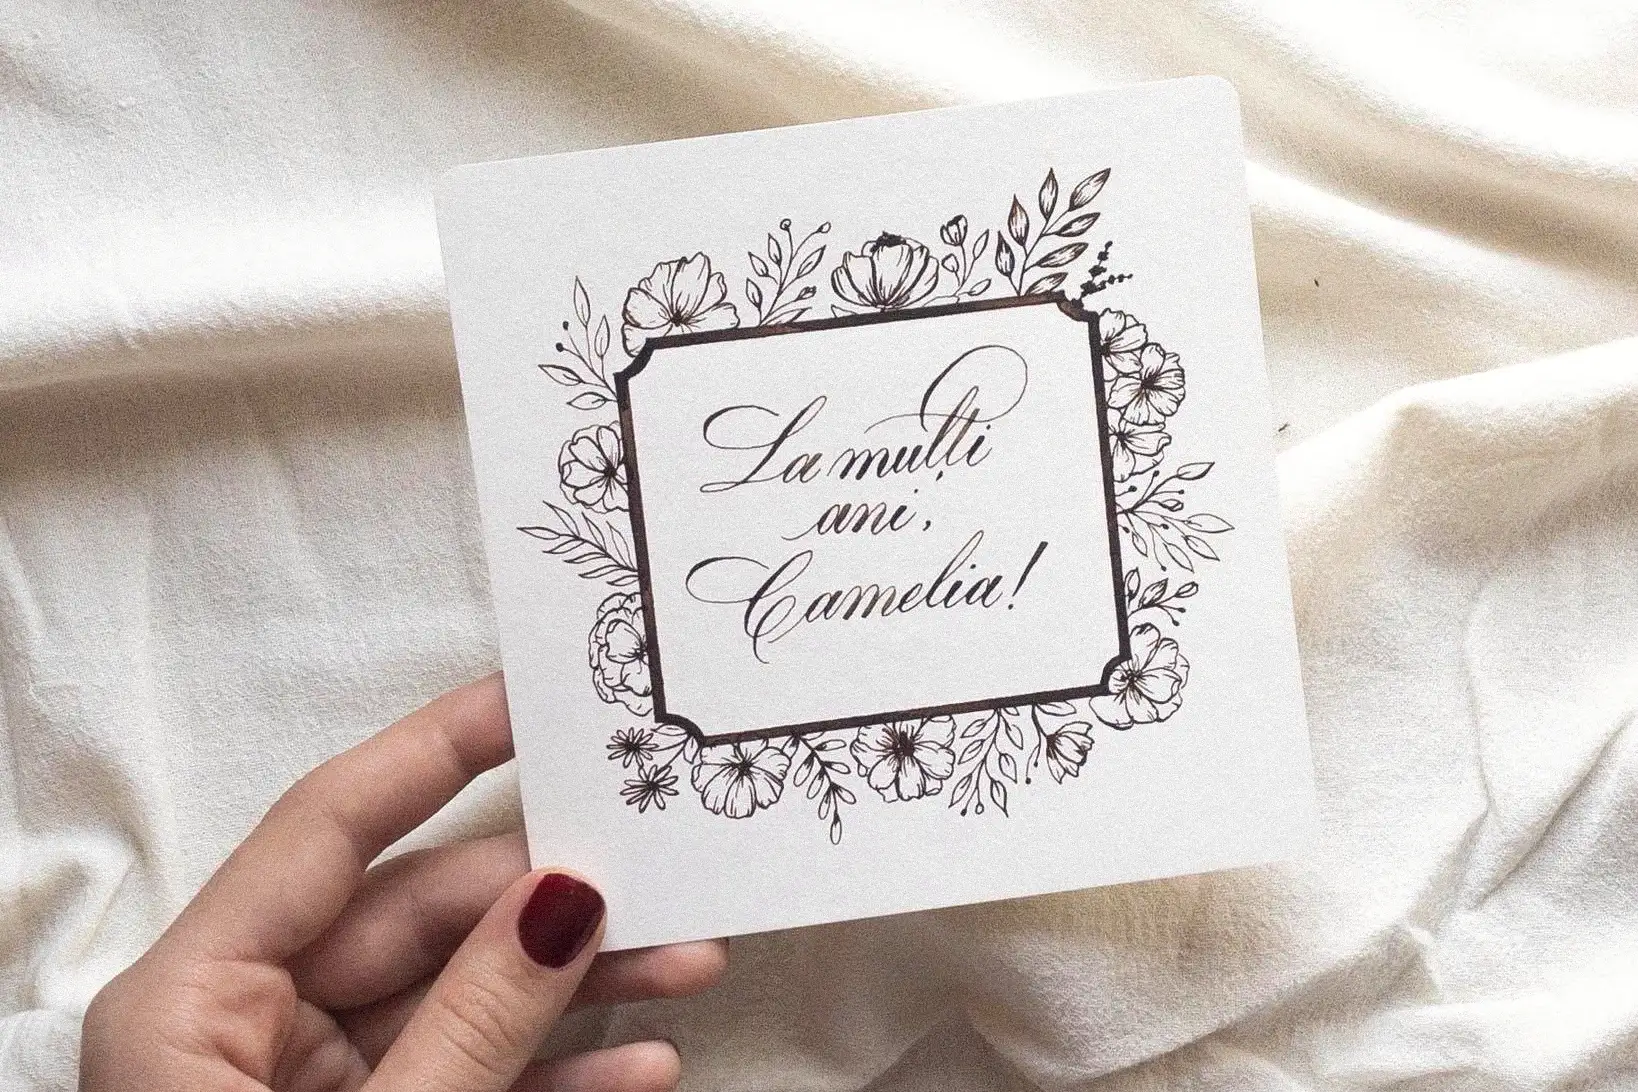 La mulți
ani,
Camelia!